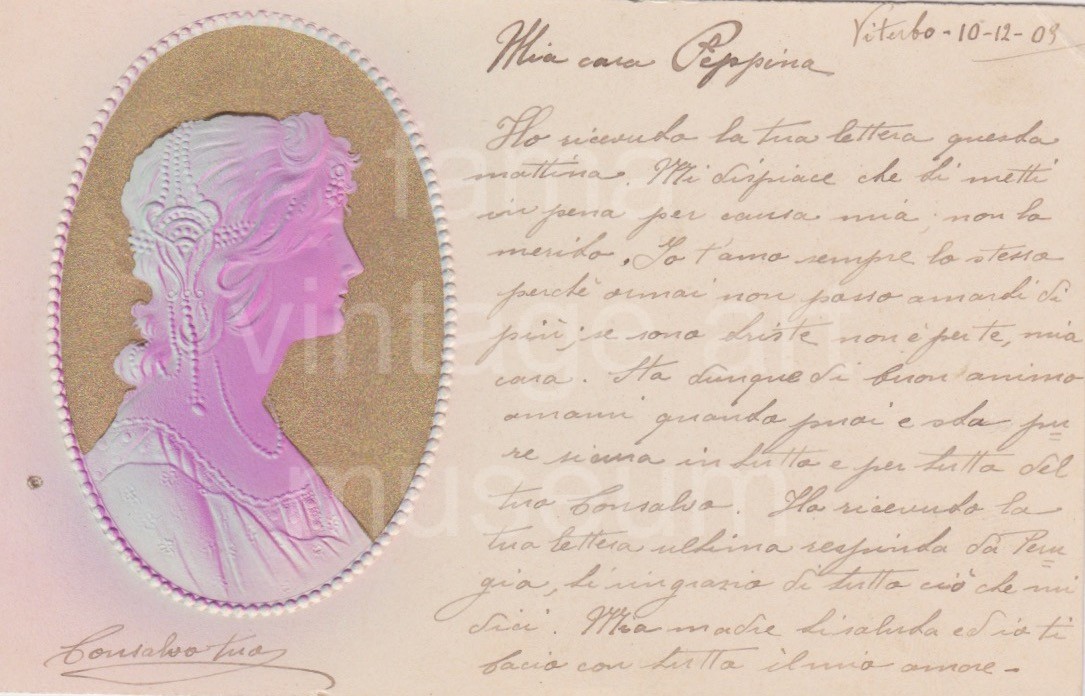 Viterbo - 10-12-09
Mia cara Peppina
Ho ricevuto la tua lettera questa
mattina. Mi dispiace che ti metti
in pena per causa mia, non lo
merito. Io t'amo sempre lo stesso
perchè ormai non posso amarti di
più; se sono triste non è per te, mia
cara. Sta dunque di buon animo
amami quanto puoi e sta pu=
re sicura in tutto e per tutto del
tuo Consalvo. Ho ricevuto la
tua lettera ultima respinta da Peru=
gia, ti ringrazio di tutto ciò che mi
dici. Mia madre ti saluta ed io ti
bacio con tutto il mio amore -
Consalvo tuo
fama
vintage art
museum